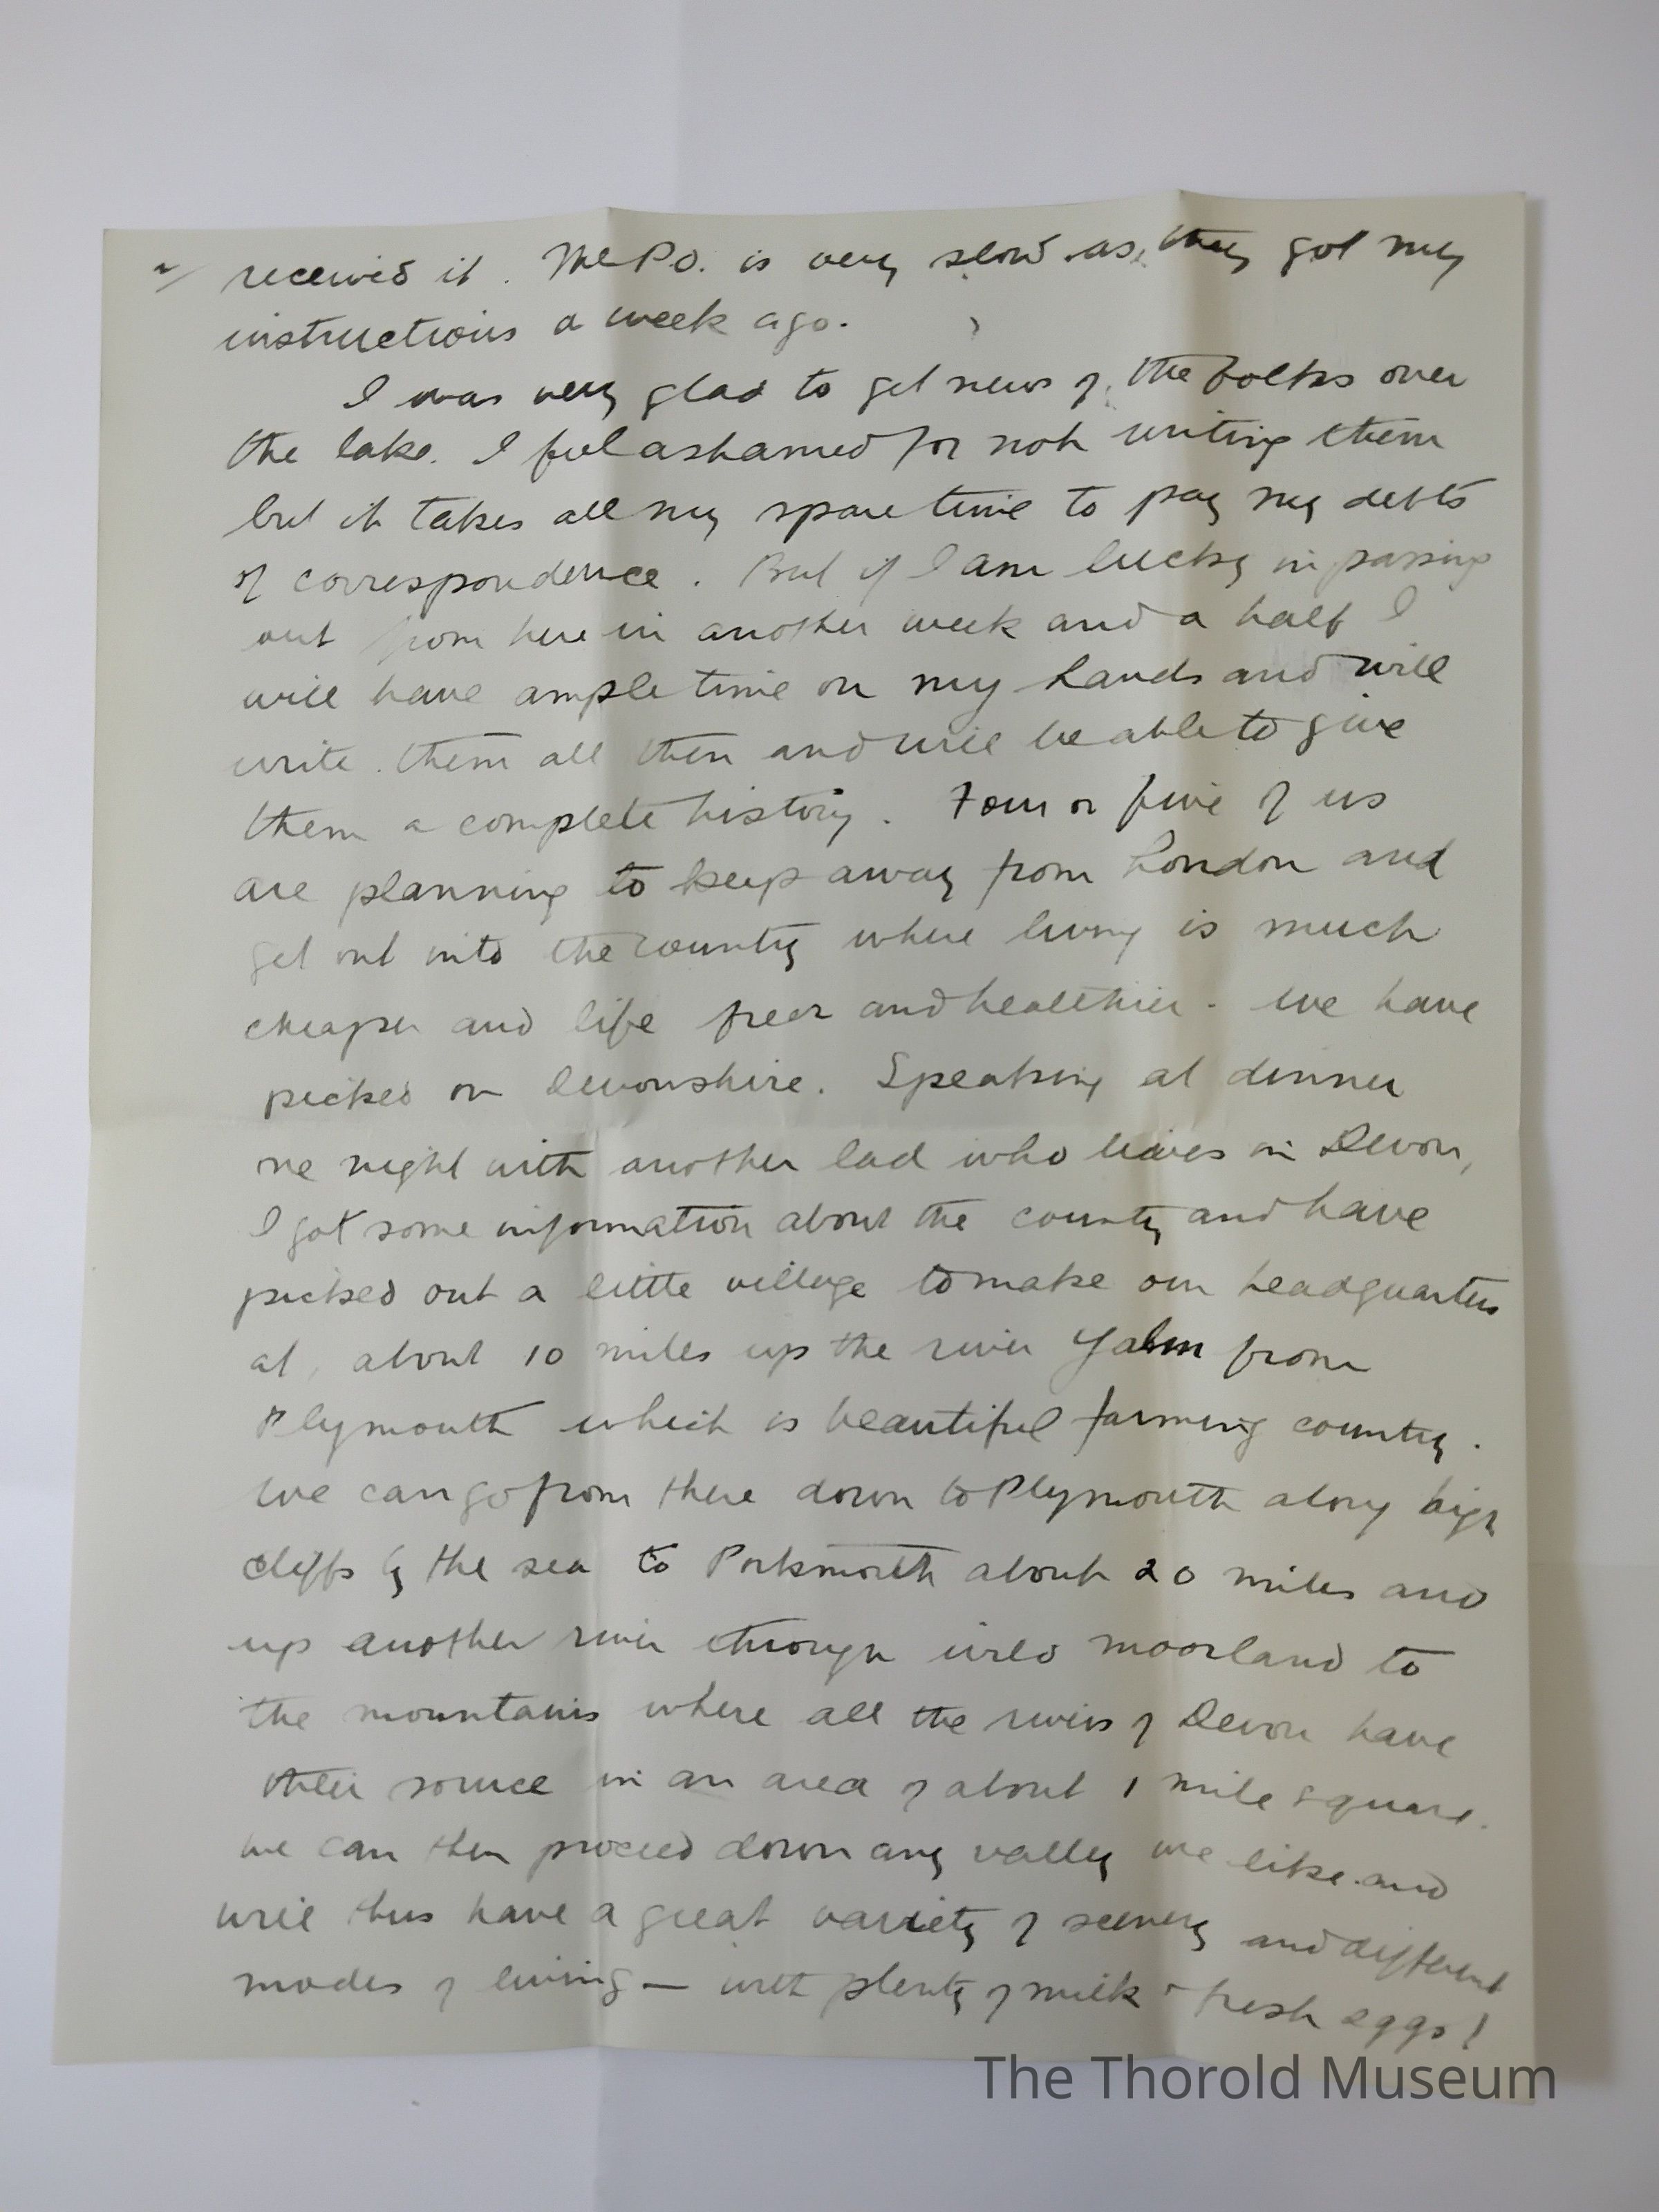 2/ received it. The P.O. is very slow as they got my
instructions a week ago.
I was very glad to get news of the folks over
the lake. I feel ashamed for not writing them
but it takes all my spare time to pay my debts
of correspondence. But if I am lucky in passing
out from here in another week and a half I
will have ample time on my hands and will
write them all then and will be able to give
them a complete history. Four or five of us
are planning to keep away from London and
get out into the country where living is much
cheaper and life freer and healthier. We have
picked on Devonshire. Speaking at dinner
one night with another lad who lives in Devon,
I got some information about the county and have
picked out a little village to make our headquarters
at, about 10 miles up the river Yalm from
Plymouth which is beautiful farming country.
We can go from there down to Plymouth along high
cliffs by the sea to Portsmouth about 20 miles and
up another river through wild moorland to
the mountains where all the rivers of Devon have
their source in an area of about 1 mile square.
We can then proceed down any valley we like and
will thus have a great variety of scenery and different
modes of living — with plenty of milk + fresh eggs!
The Thorold Museum